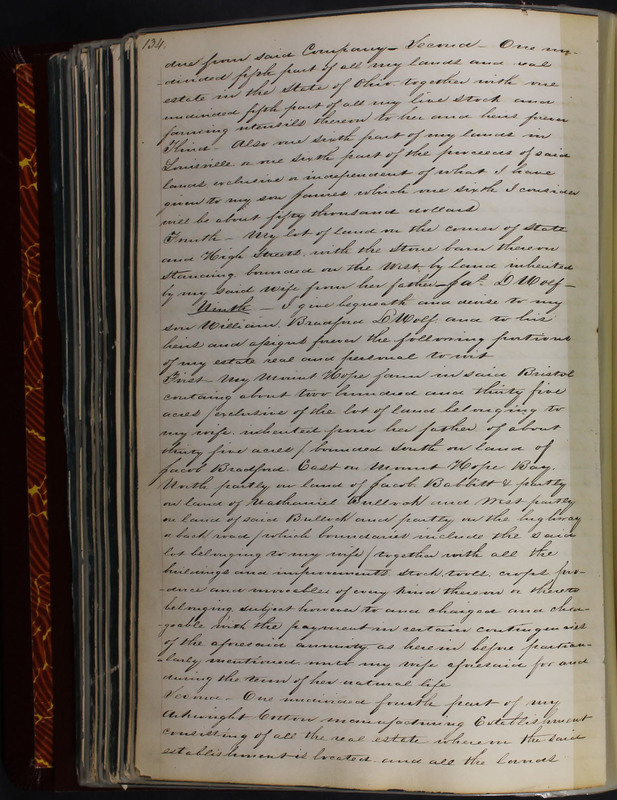 134.
due from said Company – Second – One un-
-divided fifth part of all my lands and real
estate in the State of Ohio together with one
undivided fifth part of all my live stock and
farming utensils thereon to her and heirs forever
Third – Also one sixth part of my lands in
Louisville & one sixth part of the proceeds of said
lands, exclusive & independent of what I have
given to my son James which one sixth I consider
will be about fifty thousand dollars
Fourth – My lot of land on the corner of State
and High Streets, with the stone barn thereon
standing bounded on the West by land inherited
by my said wife from her father D'Wolf –
Ninth – I give bequeath and devise to my
son William Bradford D'Wolf and to his
heirs and assigns forever the following portions
of my estate real and personal to wit
First – My Mount Hope farm in said Bristol
containg about two hundred and thirty five
acres /exclusive of the lot of land belonging to
my wife inherited from her father of about
thirty five acres/ bounded South on land of
Jacob Bradford East on Mount Hope Bay.
North partly on land of Jacob Babbitt & partly
on land of Nathaniel Bullock and West partly
on land of said Bullock and partly on the highway
or back road /which boundaries include the said
lot belonging to my wife/ together with all the
buildings and improvments stock tools crops pro-
-duce and moveables of every kind thereon or thereto
belonging subject however to and charged and char-
-geable with the payment in certain contingencies
of the aforesaid annuity as herein before particu-
-larly mentioned unto my wife aforesaid for and
during the term of her natural life
Second – One undivided fourth part of my
Arkwright Cotton manufacturing Establishment
consisting of all the real estate whereon the said
establishment is located and all the lands